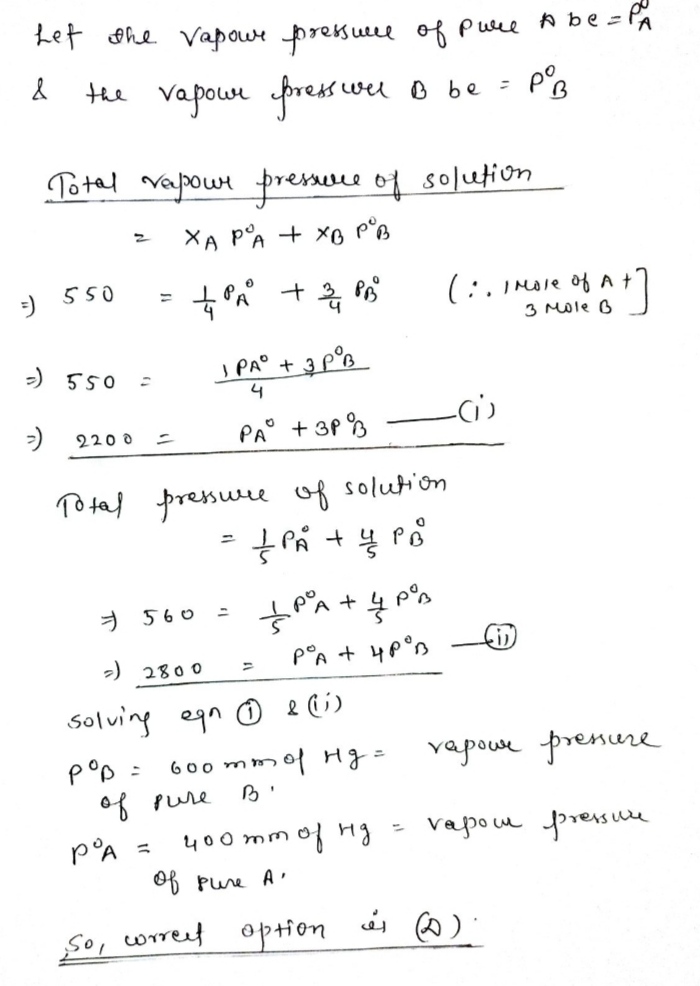 Let the vapour pressure of pure A be = P°A
& the vapour pressure B be = P°B
Total vapour pressure of solution
= XA P°A + XB P°B
=) 550 = 1/4 PA° + 3/4 PB° (∴ 1 Mole of A + 3 Mole B]
=) 550 = 1PA° + 3P°B / 4
=) 2200 = PA° + 3P°B —(i)
Total pressure of solution
= 1/5 PA° + 4/5 PB°
=) 560 = 1/5 P°A + 4/5 P°B
=) 2800 = P°A + 4P°B —(ii)
Solving eqn (1) & (ii)
P°B = 600 mm of Hg = vapour pressure
of pure B.
P°A = 400 mm of Hg = vapour pressure
of pure A.
So, correct option is (D).